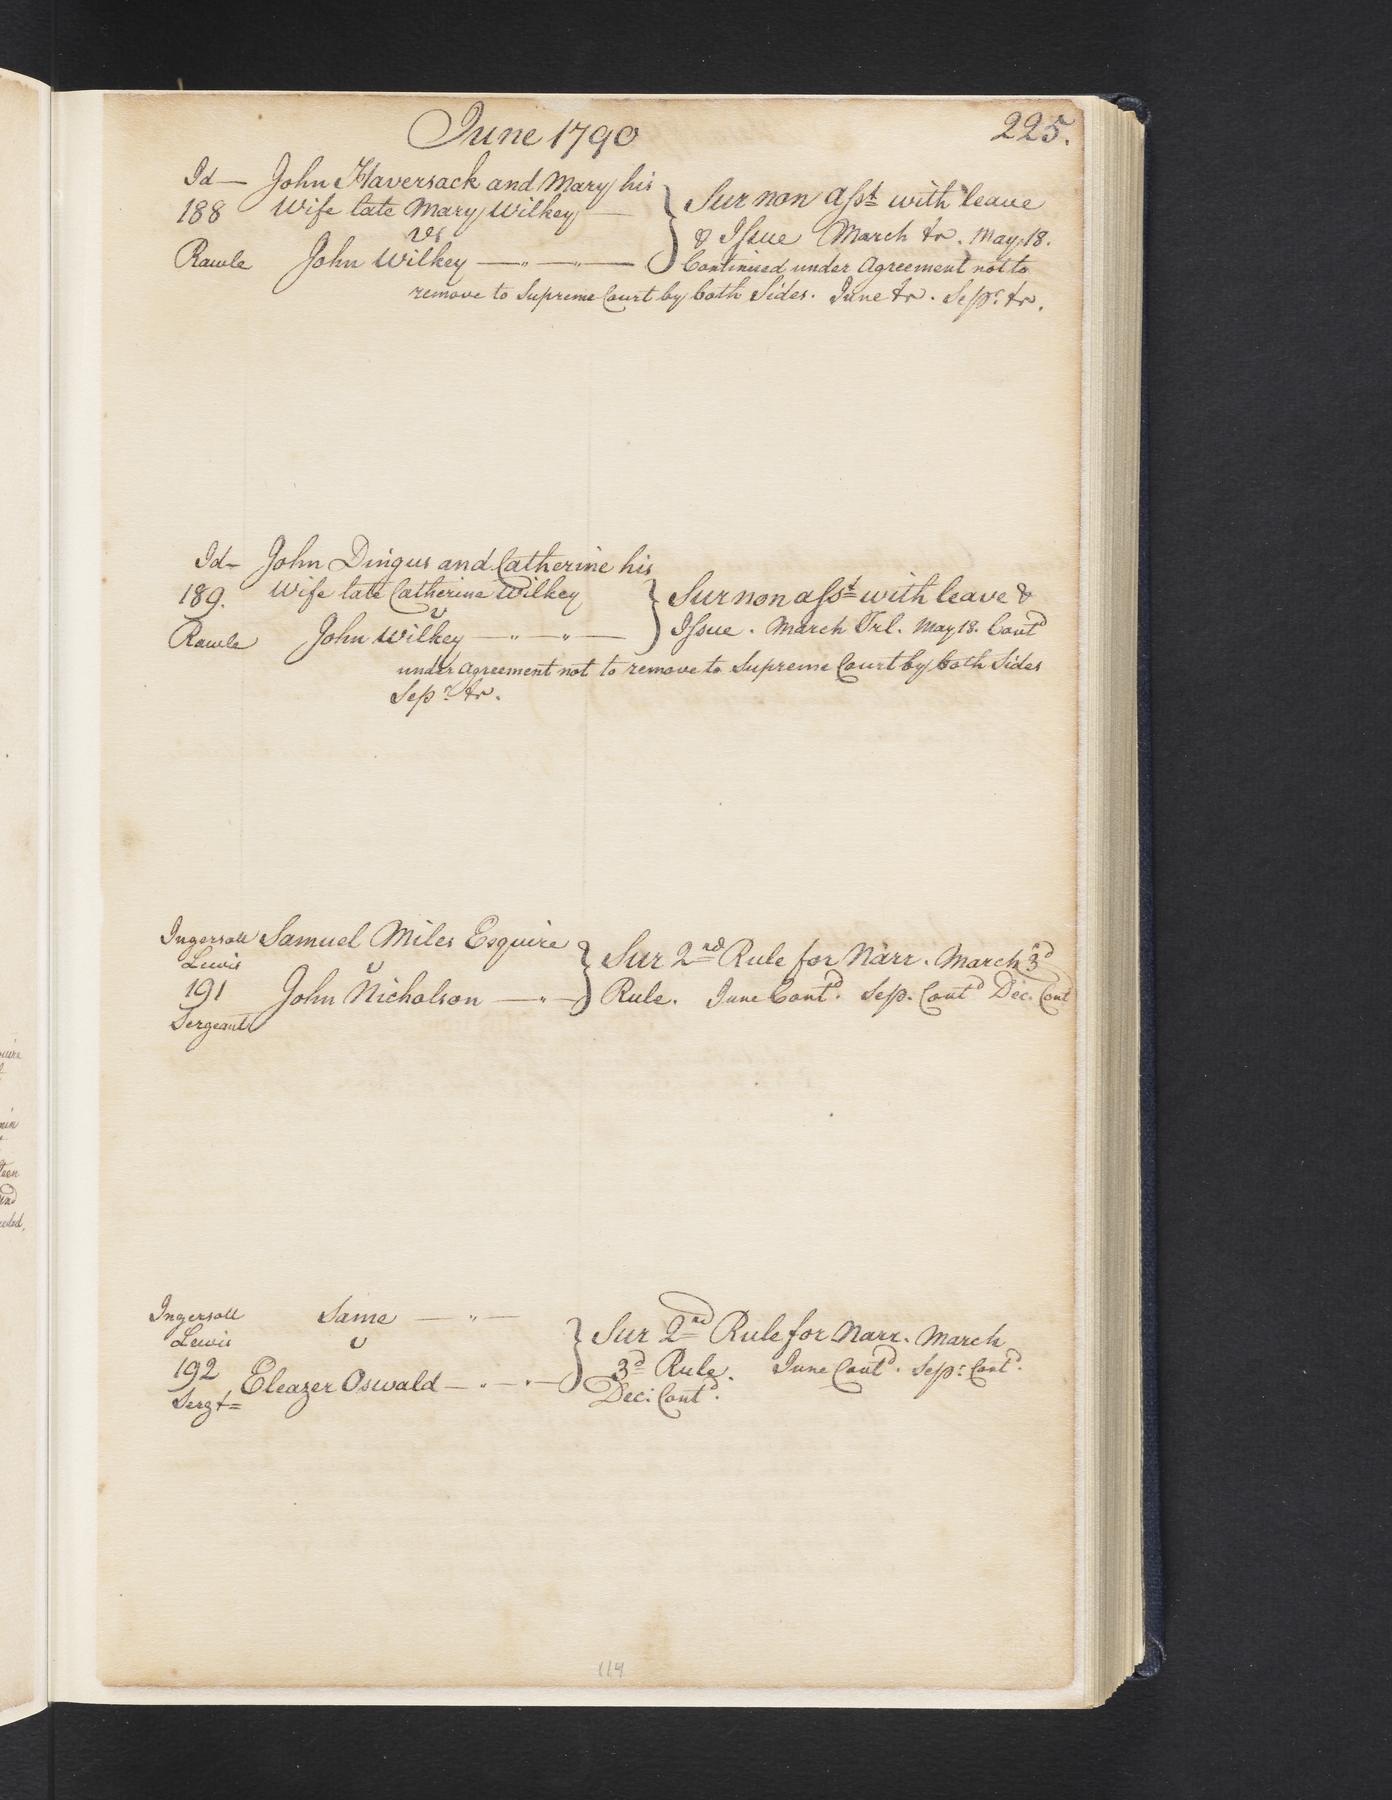 June 1790
225.
Id— John Haversack and Mary his
188 Wife late Mary Wilkey —
vs
Rawle John Wilkey — " — " —
Sur non aſst with leave
& Iſsue March tr. May. 18.
Continued under Agreement not to
remove to Supreme Court by both Sides. June tr. Sepr. tr.
Id— John Dingus and Catherine his
189. Wife late Catherine Wilkey
v
Rawle John Wilkey — " — " —
Sur non aſsd with leave &
Iſsue. March Trl. May 18. Contd
under Agreement not to remove to Supreme Court by both Sides
Sepr tr.
Ingersoll Samuel Miles Esquire
Lewis
v
191 John Nicholson — " —
Sergeant
Sur 2nd Rule for Narr. March 3d
Rule. June Contd. Sep. Contd Dec. Cont
Ingersoll Same — " —
Lewis
v
192 Eleazer Oswald — " — " —
Sergt
Sur 2nd Rule for Narr. March
3d Rule. June Contd. Sep: Contd.
Dec: Contd.
114
uire
min
teen
and
eded,